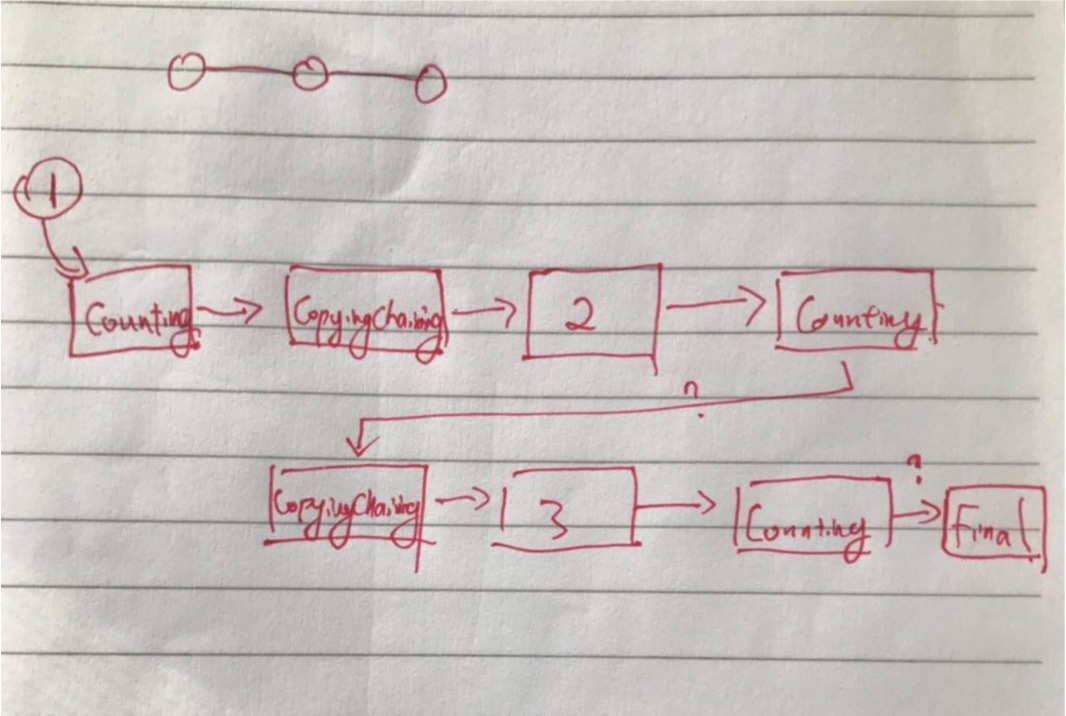 1
Counting CopyingChaining 2 Counting
?
CopyingChaining 3 Counting ? Final